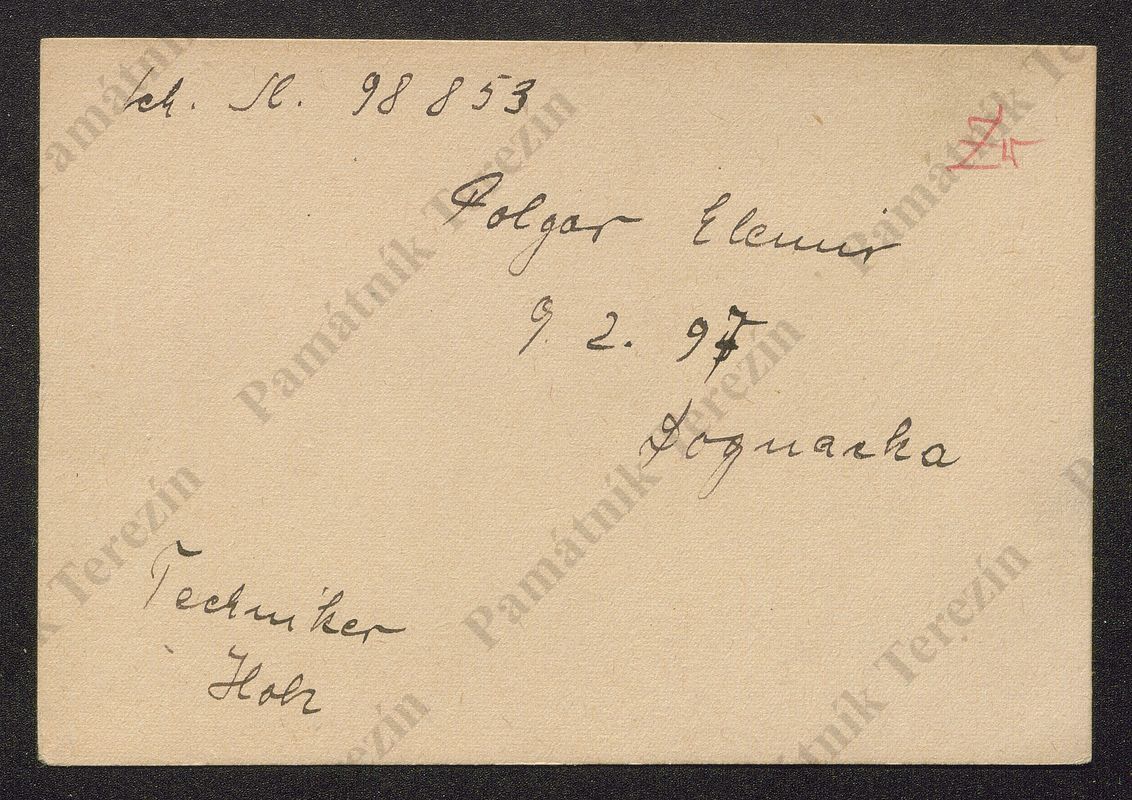 Sch. Sl. 98 853
Polgar Elemir
9. 2. 97
Dognacka
Techniker
Holz
Památník Terezín
Památník Terezín
Památník Terezín
Památník Terezín
Památník Terezín